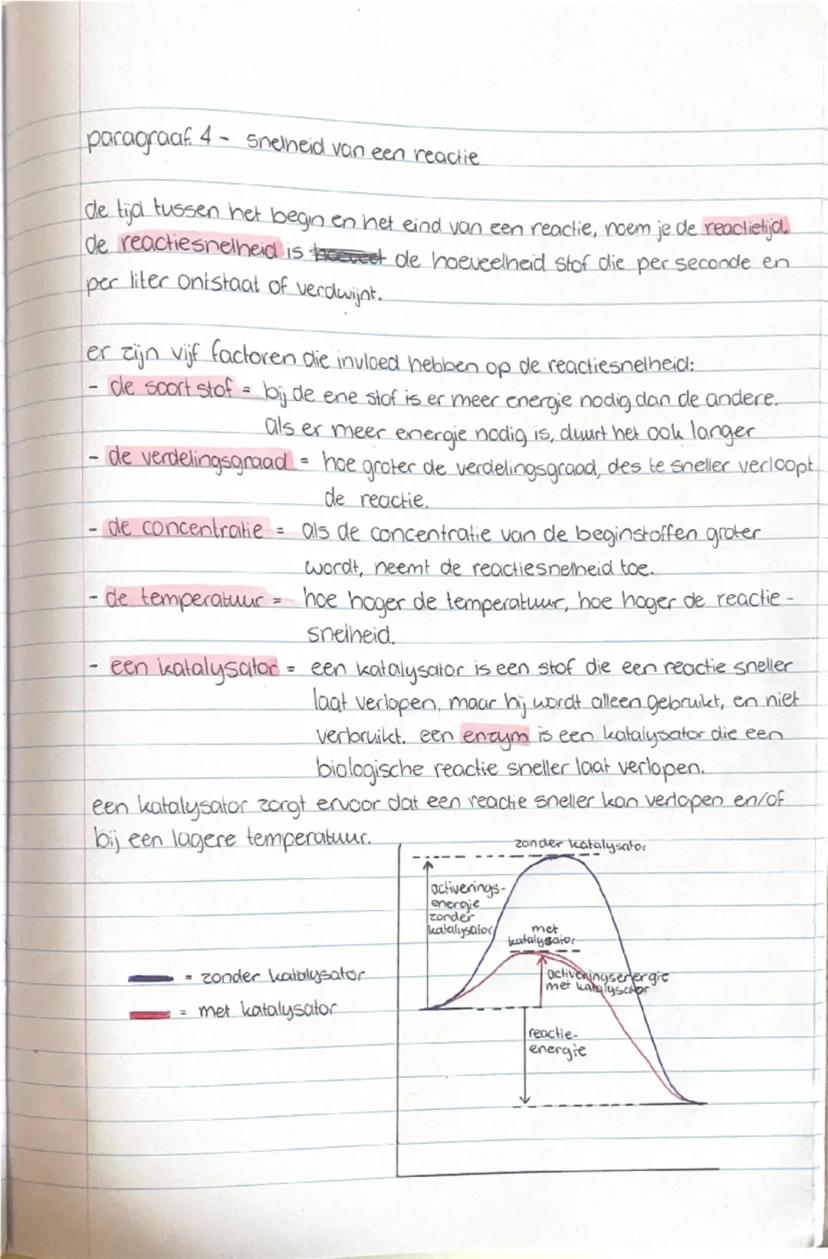 paragraaf 4 - snelheid van een reactie
de tijd tussen het begin en het eind van een reactie, noem je de reactietijd.
de reactiesnelheid is de hoeveelheid stof die per seconde en
per liter ontstaat of verdwijnt.
er zijn vijf factoren die invloed hebben op de reactiesnelheid:
- de soort stof = bij de ene stof is er meer energie nodig dan de andere.
als er meer energie nodig is, duurt het ook langer
- de verdelingsgraad = hoe groter de verdelingsgraad, des te sneller verloopt
de reactie.
- de concentratie = als de concentratie van de beginstoffen groter
wordt, neemt de reactiesnelheid toe.
- de temperatuur = hoe hoger de temperatuur, hoe hoger de reactie-
snelheid.
- een katalysator = een katalysator is een stof die een reactie sneller
laat verlopen, maar hij wordt alleen gebruikt, en niet
verbruikt. een enzym is een katalysator die een
biologische reactie sneller laat verlopen.
een katalysator zorgt ervoor dat een reactie sneller kan verlopen en/of
bij een lagere temperatuur.
zonder katalysator
activerings-
energie
zonder
katalysator
met
katalysator
activeringsenergie
met katalysator
= zonder katalysator
= met katalysator
reactie-
energie